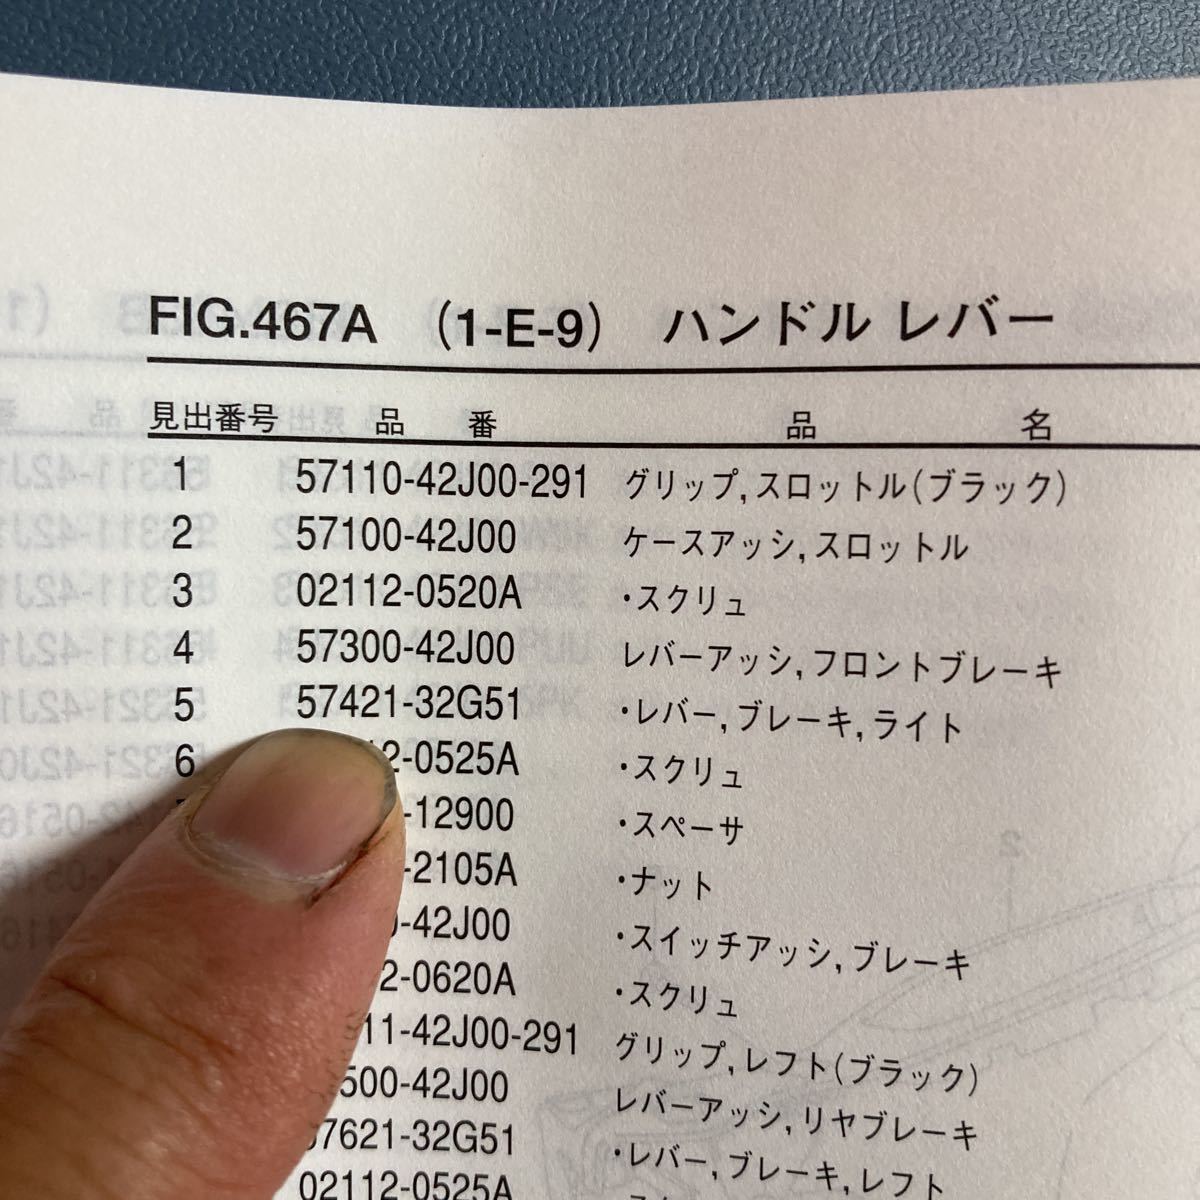 FIG.467A (1-E-9) ハンドル レバー
見出番号 品 番 品 名
1 57110-42J00-291 グリップ,スロットル(ブラック)
2 57100-42J00 ケースアッシ,スロットル
3 02112-0520A ・スクリュ
4 57300-42J00 レバーアッシ,フロントブレーキ
5 57421-32G51 ・レバー,ブレーキ,ライト
6 2-0525A ・スクリュ
-12900 ・スペーサ
-2105A ・ナット
-42J00 ・スイッチアッシ,ブレーキ
2-0620A ・スクリュ
11-42J00-291 グリップ,レフト(ブラック)
500-42J00 レバーアッシ,リヤブレーキ
7621-32G51 ・レバー,ブレーキ,レフト
02112-0525A